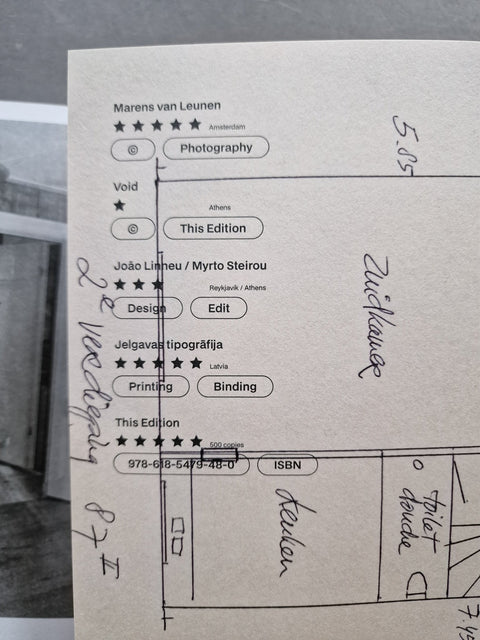 Marens van Leunen
★★★★★ Amsterdam
© Photography
Void
★ Athens
© This Edition
João Linneu / Myrto Steirou
★★★ Reykjavik / Athens
Design Edit
Jelgavas tipogrāfija
★★★★★ Latvia
Printing Binding
This Edition
★★★★★ 500 copies
978-618-5479-48-0 ISBN
5.85
Zuidkamer
2e verdieping 87 II
keuken
toilet
douche